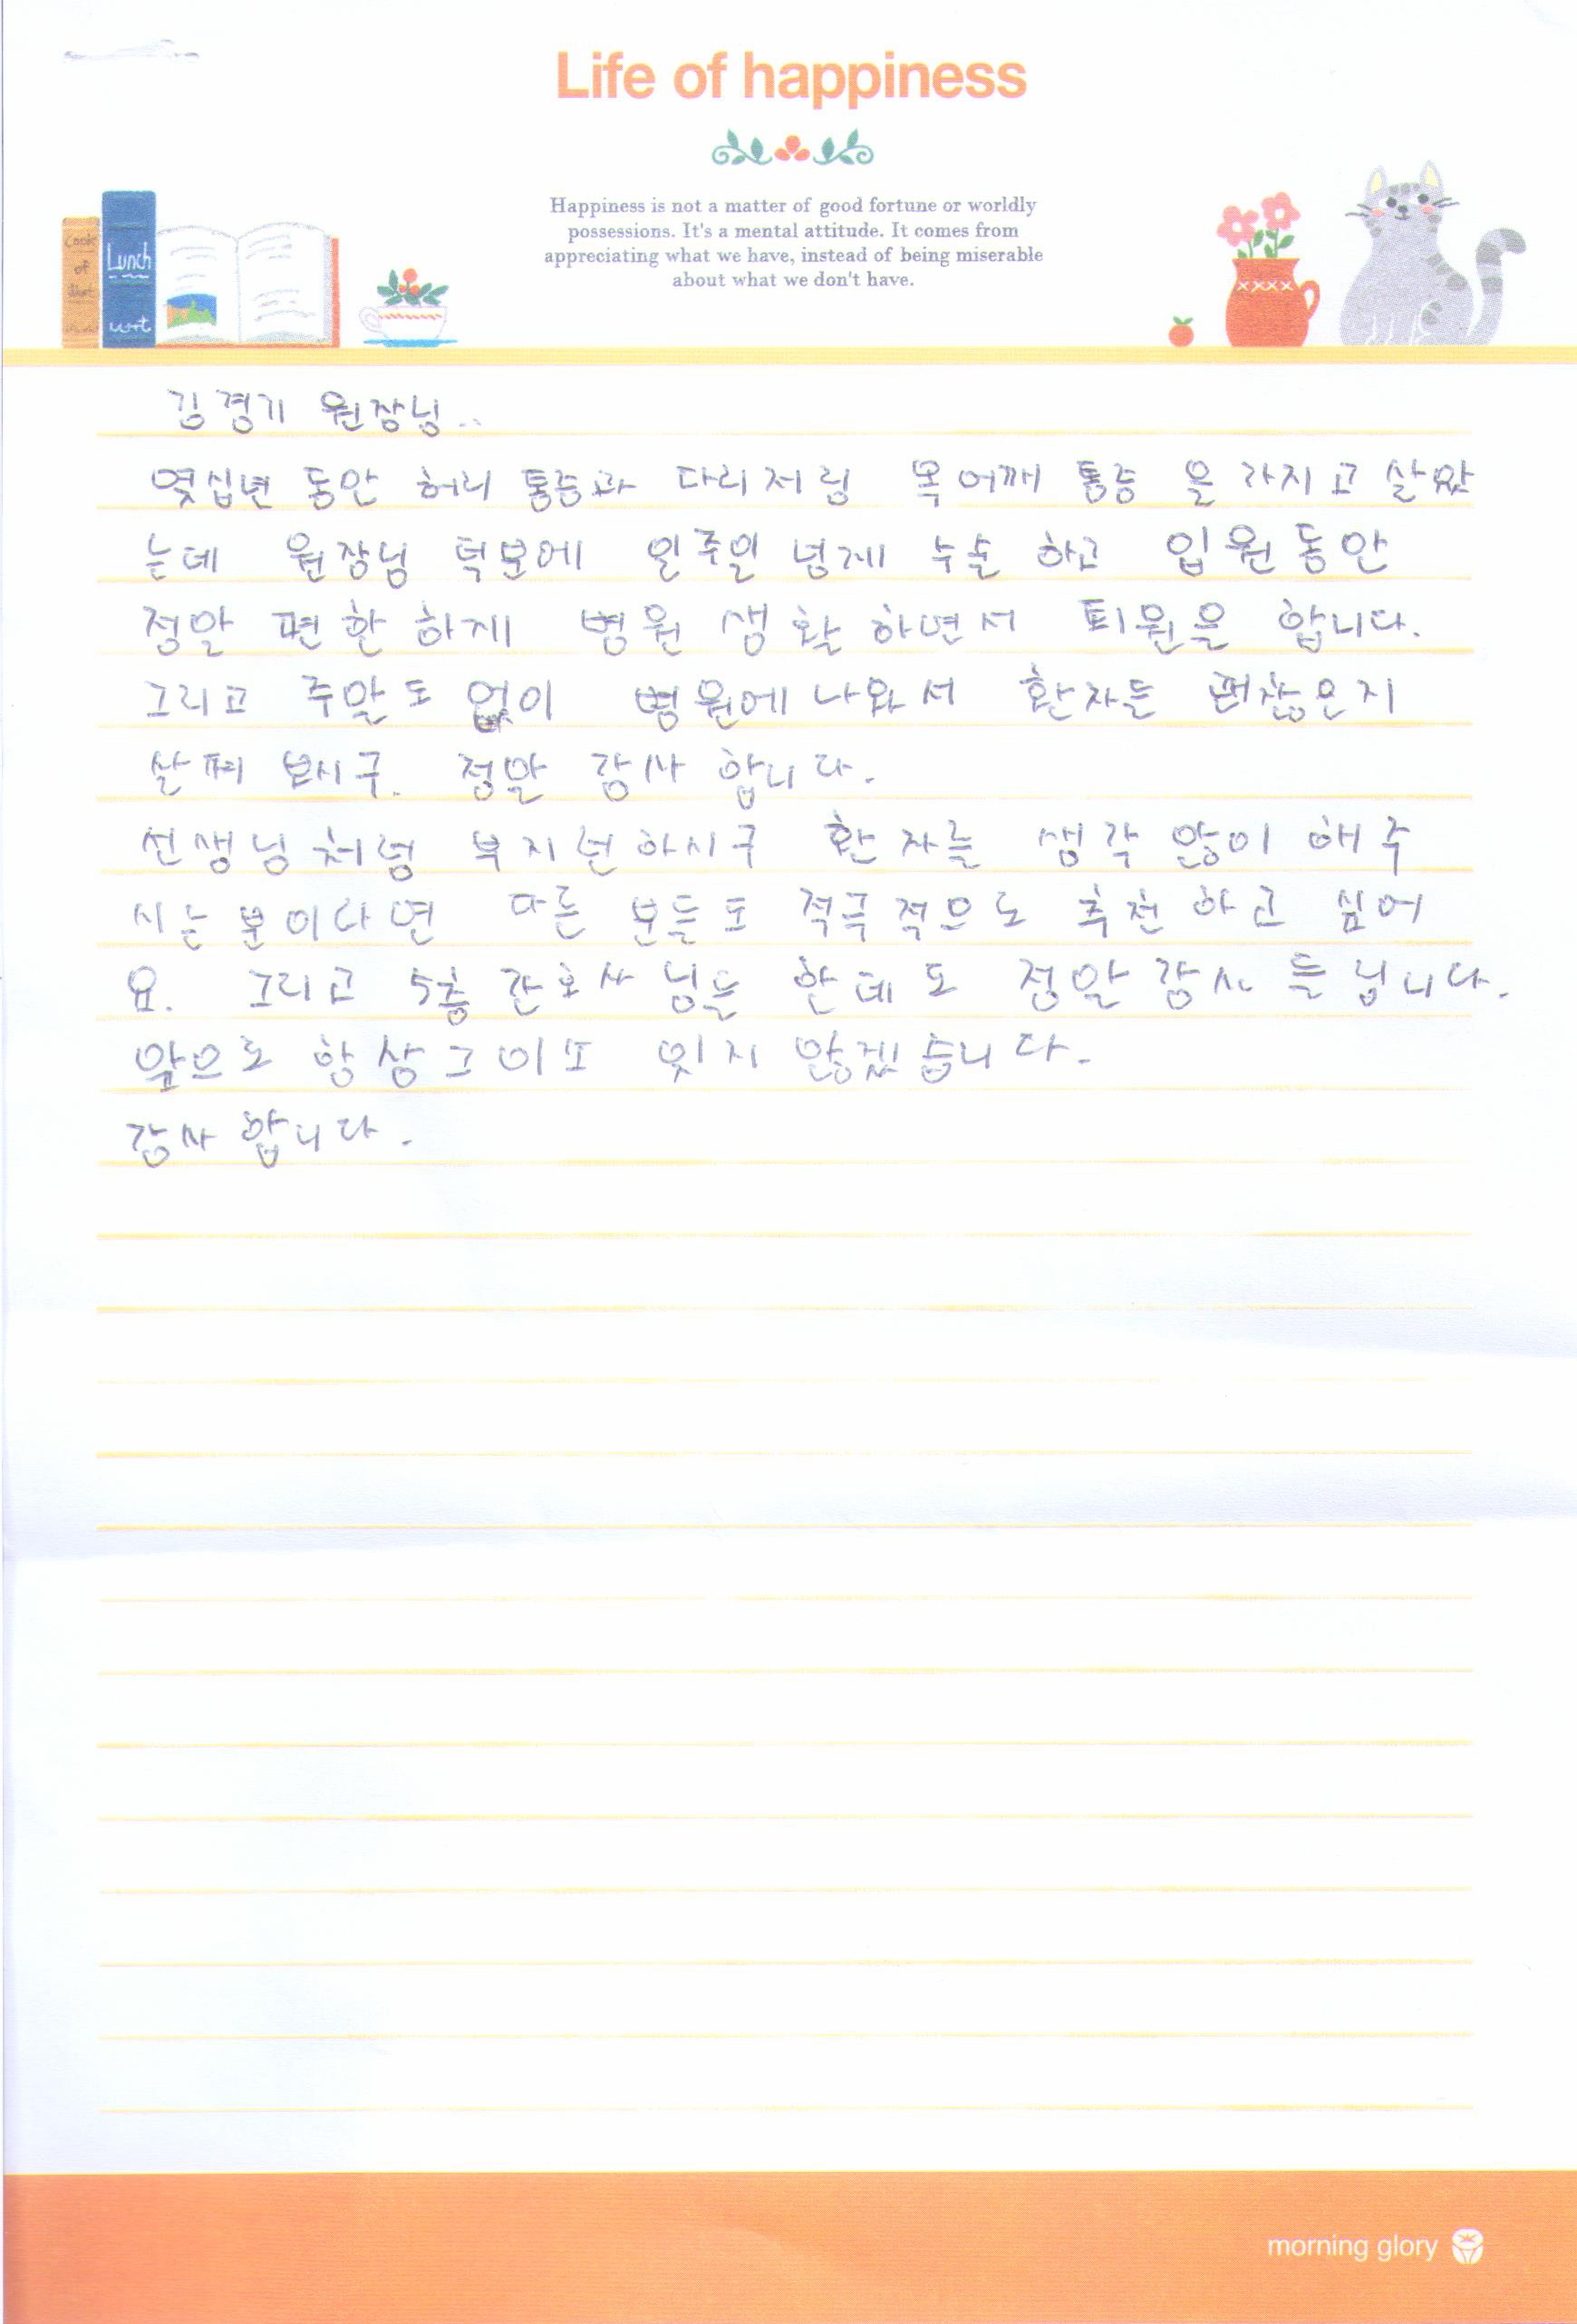 Life of happiness
Happiness is not a matter of good fortune or worldly
possessions. It's a mental attitude. It comes from
appreciating what we have, instead of being miserable
about what we don't have.
Cook
of
Lunch
김경기 원장님..
몇십년 동안 허리 통증과 다리저림 목 어깨 통증 을 가지고 살았
는데 원장님 덕분에 일주일 넘게 수술 하고 입원동안
정말 편한 하게 병원 생활 하면서 퇴원을 합니다.
그리고 주말도 없이 병원에 나와서 환자는 괜찮은지
살펴 보시구. 정말 감사 합니다.
선생님처럼 부지런하시구 환자를 생각 많이 해주
시는 분이라면 다른 분들도 적극적으로 추천 하고 싶어
요. 그리고 5층 간호사 님들 한테도 정말 감사 드립니다.
앞으로 항상 그 잊지 않겠습니다.
감사 합니다.
morning glory